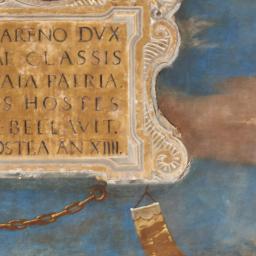 ARENO DVX
CLASSIS
PATRIA
S HOSTES
BELLAVIT.
OSTEA AN XIIII.